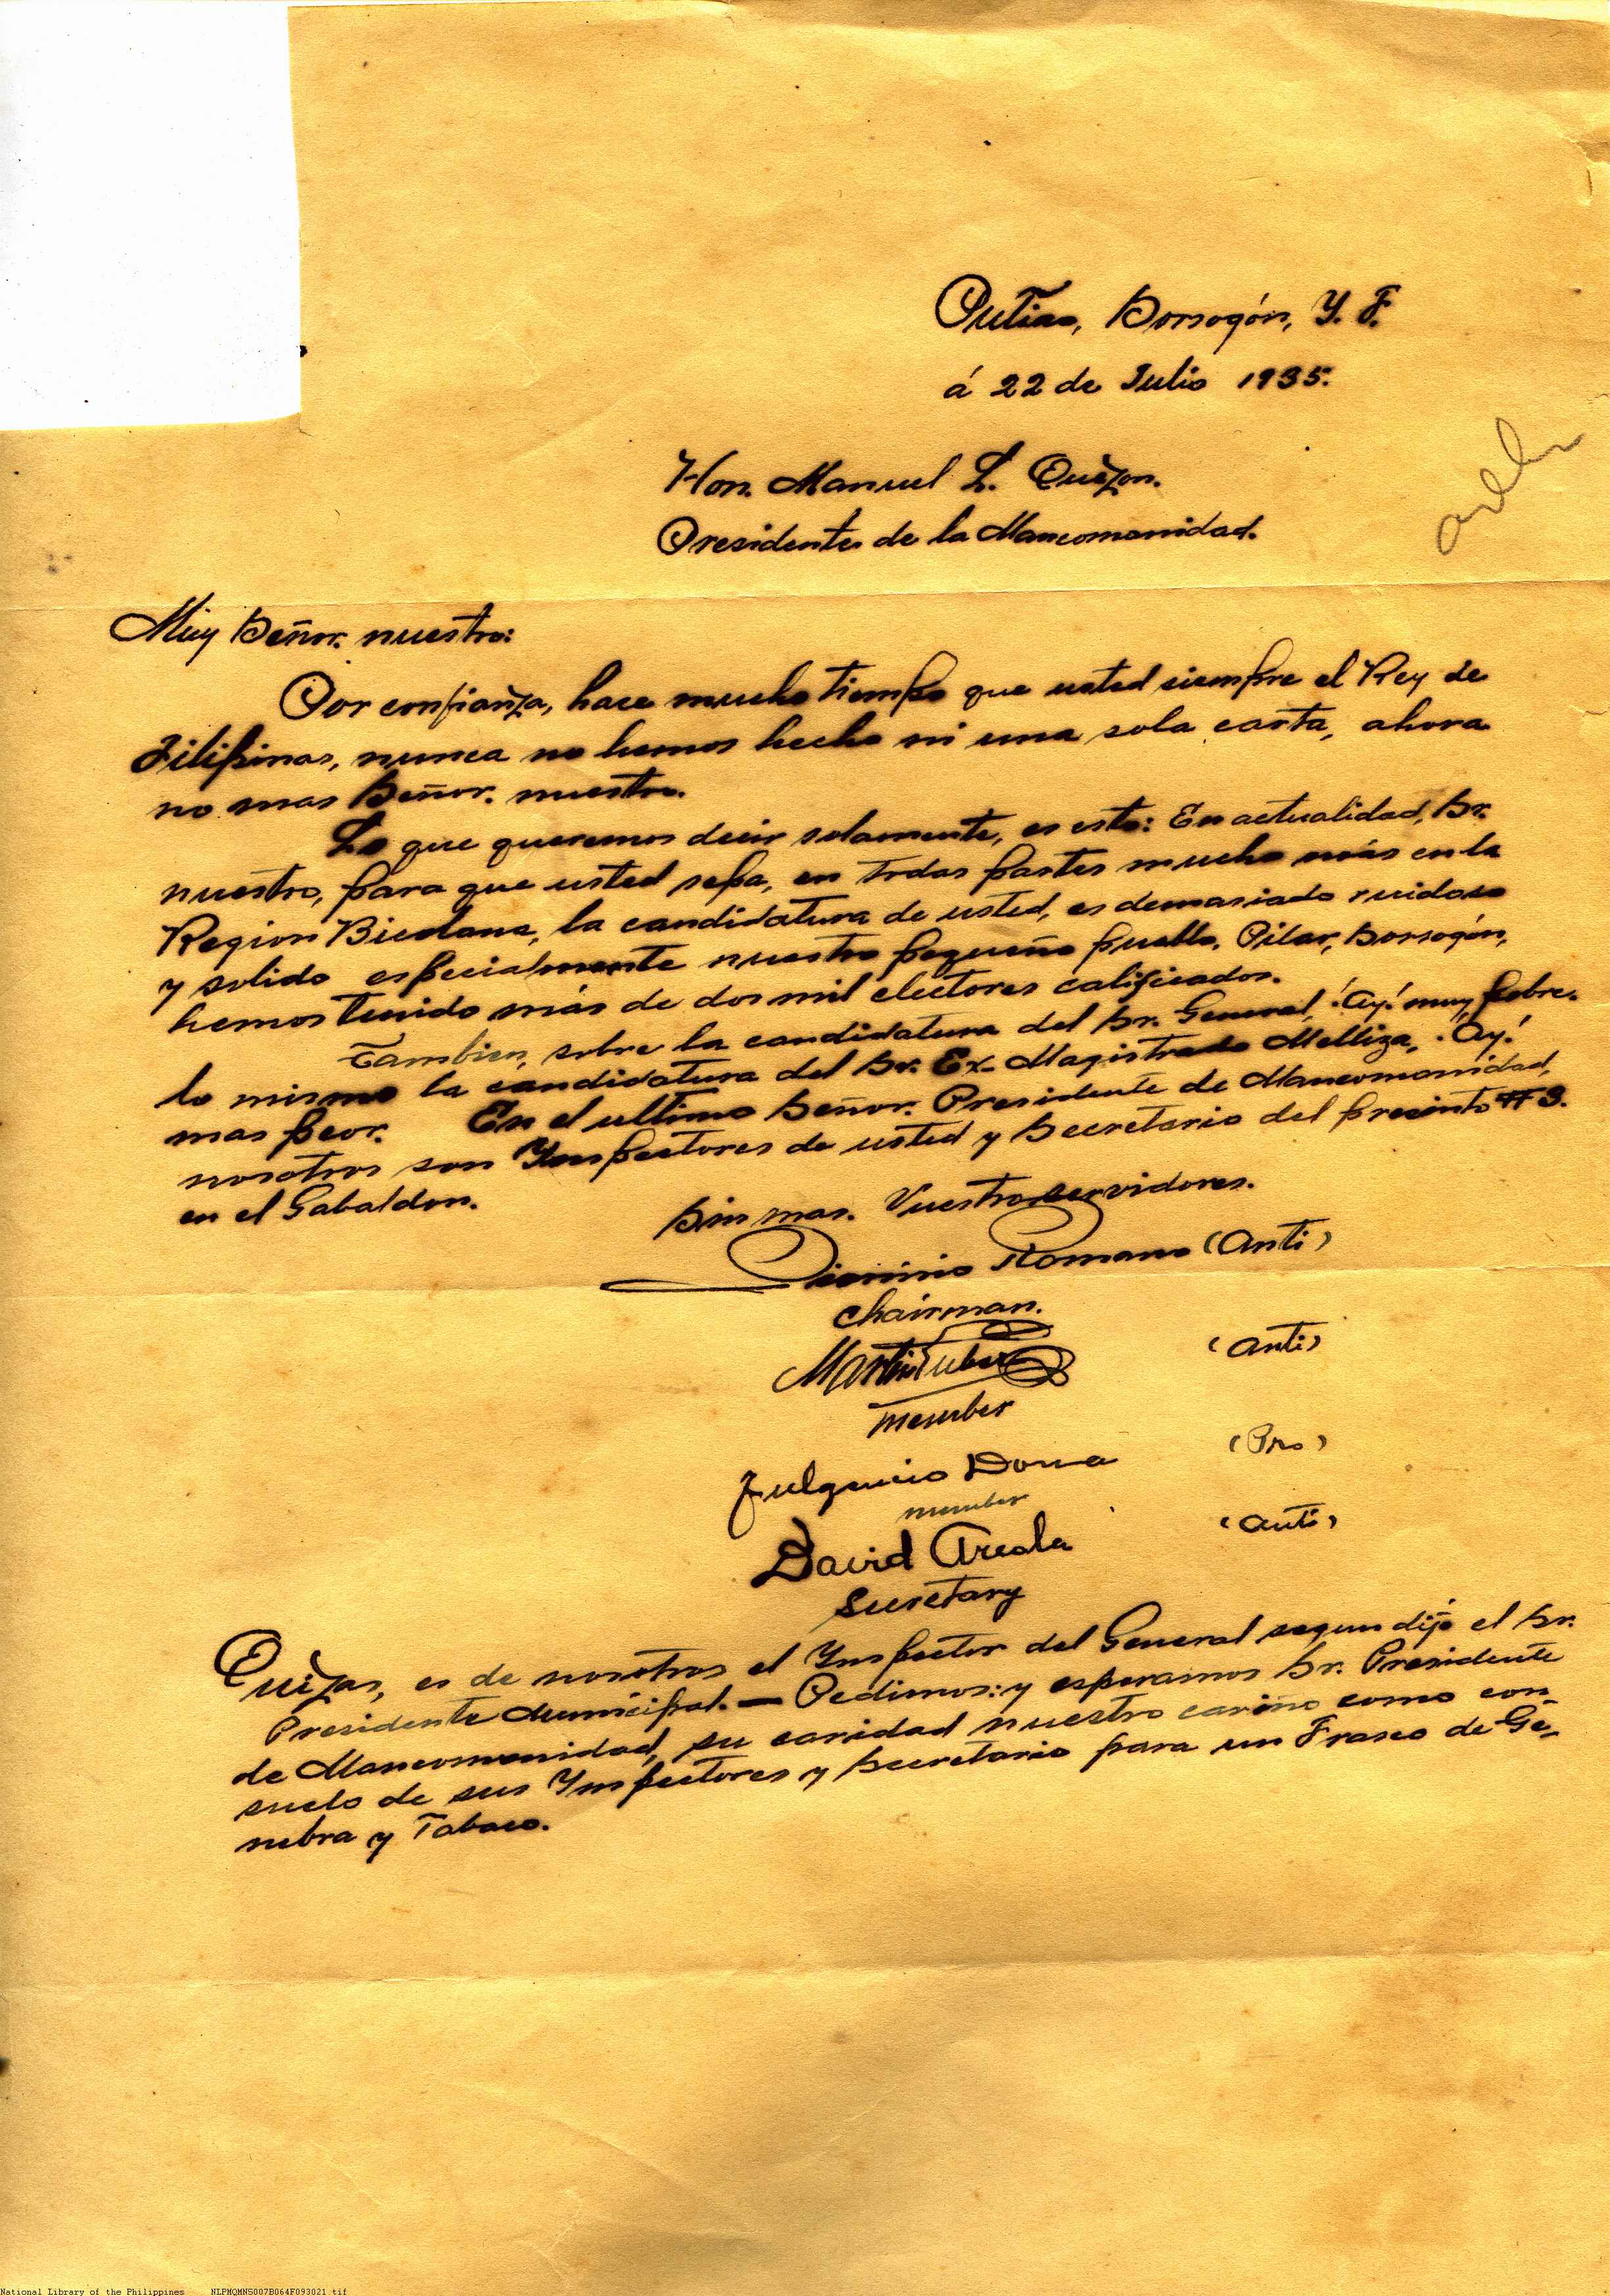 Putiao, Sorsogón, Y. F.
á 22 de Julio 1935.
Hon. Manuel L. Quezon.
Presidente de la Mancomonidad.
Muy Señor. nuestro:
Por confianza, hace mucho tiempo que usted siempre el Rey de
Filipinas, nunca no hemos hecho ni una sola carta, ahora
no mas Señor. nuestro.
Lo que queremos decir solamente, es esto: En actualidad, Sr.
nuestro, para que usted sepa, en todas partes mucho más en la
Region Bicolana, la candidatura de usted, es demasiado ruidoso
y solido especialmente nuestro pequeño pueblo, Pilar, Sorsogón,
hemos tenido más de dos mil electores calificados.
Tambien, sobre la candidatura del Sr. General, ¡Ay! muy pobre.
lo mismo la candidatura del Sr. Ex-Magistrado Melliza, ¡Ay!
mas peor. En el ultimo Señor. Presidente de Mancomonidad,
nosotros son Ynspectores de usted y Secretario del precinto #3.
en el Gabaldon.
Sin mas. Vuestro servidores.
Dionisio Romano (Anti)
Chairman.
Martin (Anti)
member
Fulgencio Doma (Pro)
member
David Areola (Anti)
Secretary
Quizas, es de nosotros el Ynspector del General segun dijo el Sr.
Presidente Municipal. — Pedimos: y esperamos Sr. Presidente
de Mancomonidad, su caridad nuestro cariño como con-
suelo de sus Ynspectores y Secretario para un Frasco de Ge-
nebra y Tabaco.
National Library of the Philippines NLPMQMNS007B064F093021.tif